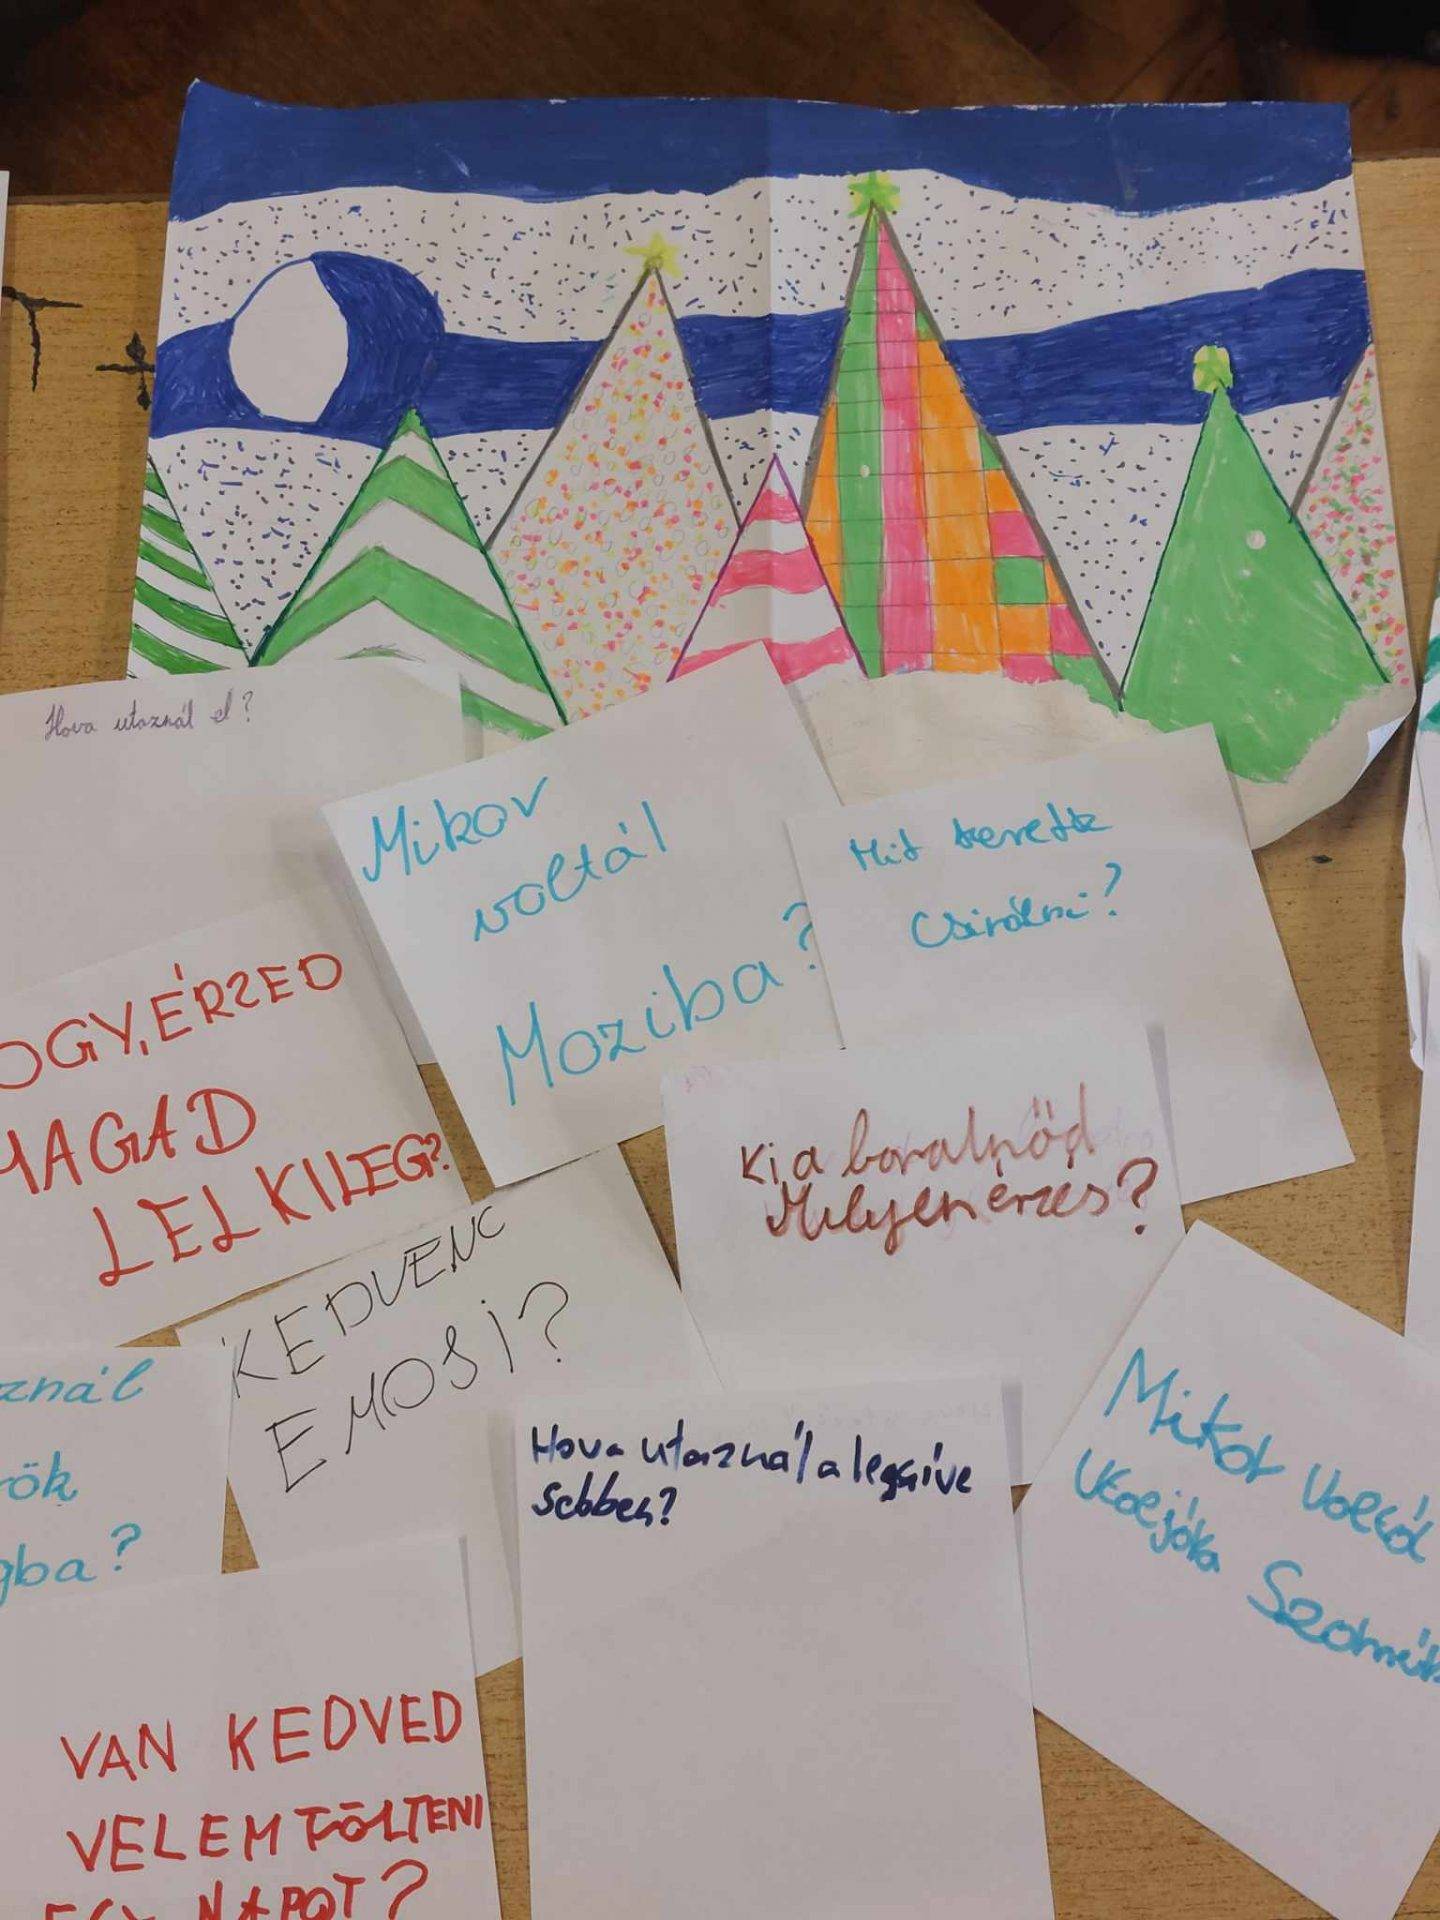 Hova utaznál el?
Mikor
voltál
Moziba?
Mit
Csinálni?
OGY, ÉRZED
MAGAD
LELKILEG?
Ki a
Milyen érzés?
KEDVENC
EMOJI?
znál
rök
gba?
Hova utaznál a legszíve
sebben?
Mikor Voltál
Utoljára
VAN KEDVED
VELEM TÖLTENI
EGY NAPOT?